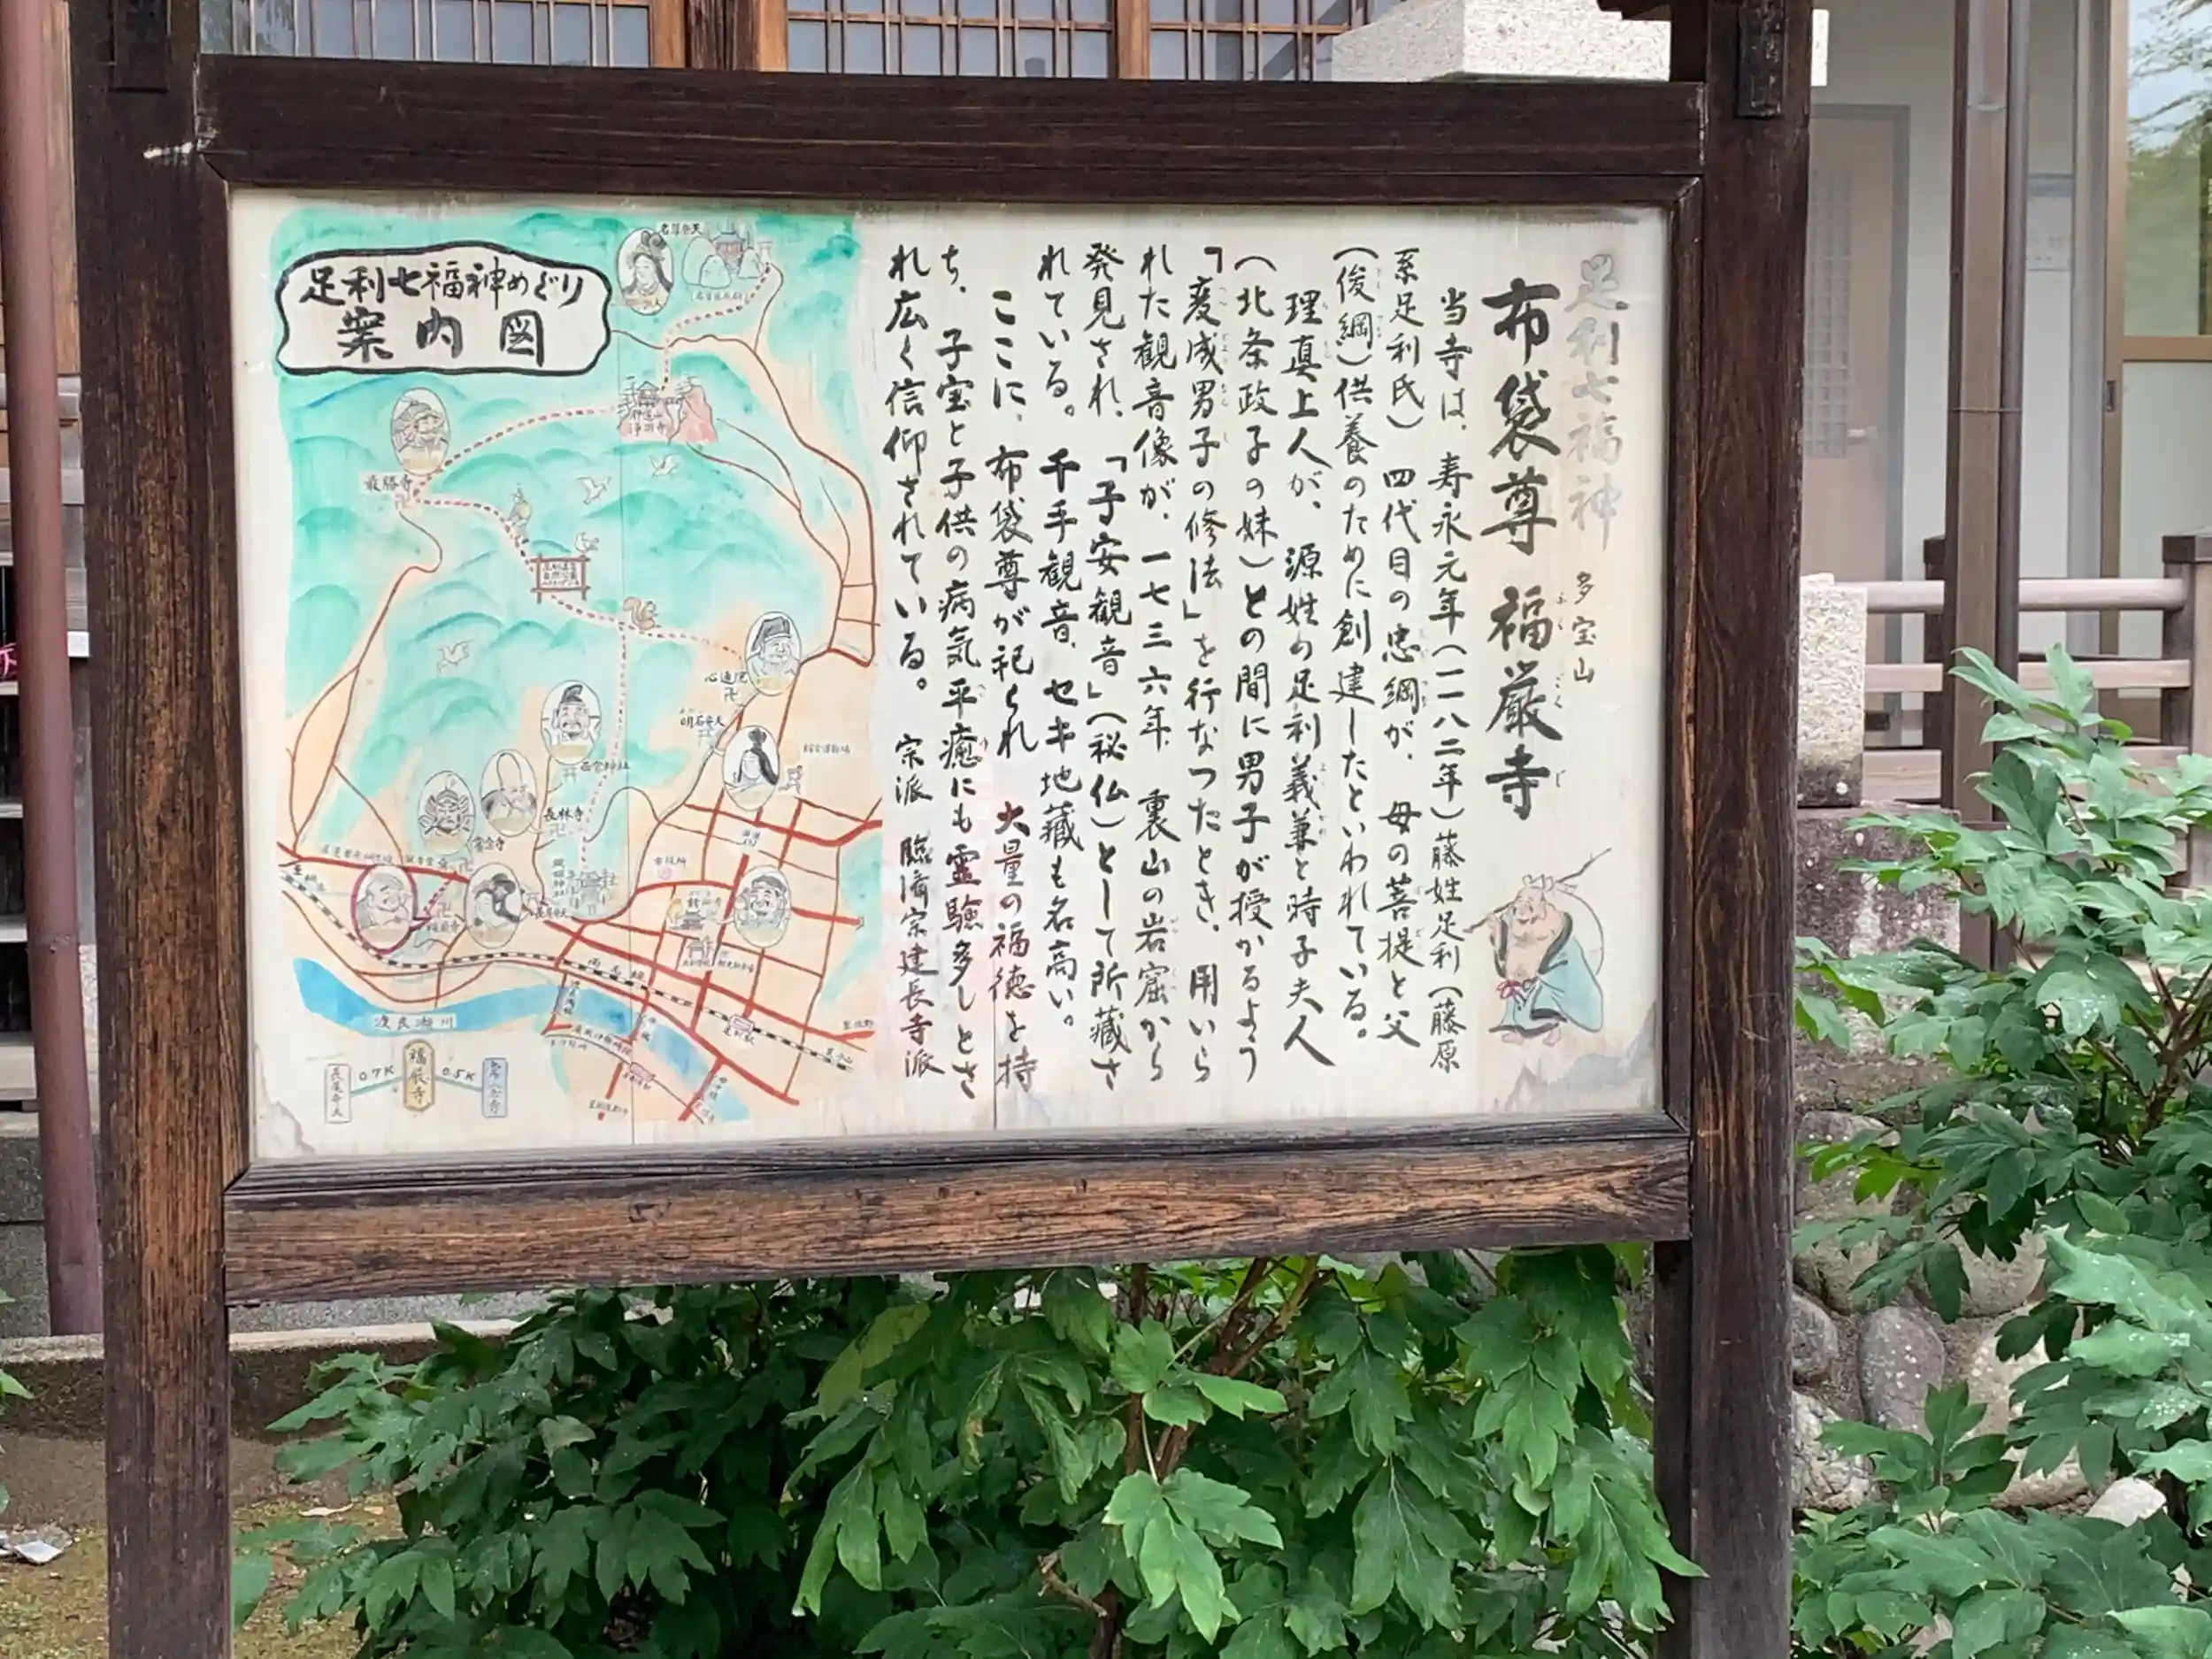 足利七福神
多宝山
布袋尊 福厳寺
ふく ごく じ
当寺は、寿永元年(一一八二年)藤姓足利(藤原
系足利氏) 四代目の忠綱が、母の菩提と父
(俊綱)供養のために創建したといわれている。
理真上人が、源姓の足利義兼と時子夫人
(北条政子の妹)との間に男子が授かるよう
「変成男子の修法」を行なつたとき、用いら
れた観音像が、一七三六年、裏山の岩窟から
発見され、「子安観音」(秘仏)として所蔵さ
れている。千手観音、セキ地蔵も名高い。
ここに、布袋尊が祀られ 大量の福徳を持
ち、子宝と子供の病気平癒にも霊験多しとさ
れ広く信仰されている。 宗派 臨済宗建長寺派
足利七福神めぐり
案内図
名草弁天
浄因寺
最勝寺
心通院
明石弁天
西宮神社
長林寺
常念寺
市役所
長尾弁天
両毛線
渡良瀬川
福厳寺
長尾弁天
0.7K
0.5K
常念寺